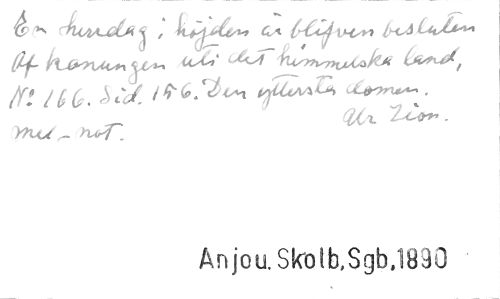 En herredag i höjden är blifven besluten
Af konungen uti det himmelska land,
No 166. Sid. 156. Den yttersta domen.
Ur Zion.
mel-not.
Anjou. Skolb, Sgb, 1890